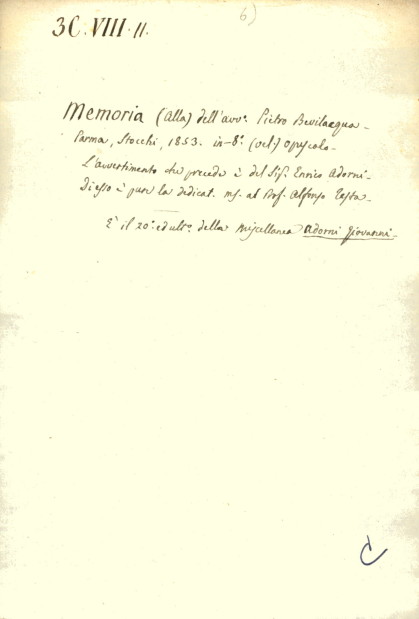 6)
3C.VIII.11.
Memoria (alla) dell'avv.º Pietro Bevilacqua -
Parma, Stocchi, 1853. in-8.º (oct.) Opuscolo -
L'avvertimento che precede è del Sig. Enrico Adorni -
Di esso è pure la dedicat. ms. al Prof. Alfonso Testa -
È il 20.º ed ult.º della Miscellanea Adorni Giovanni -
C